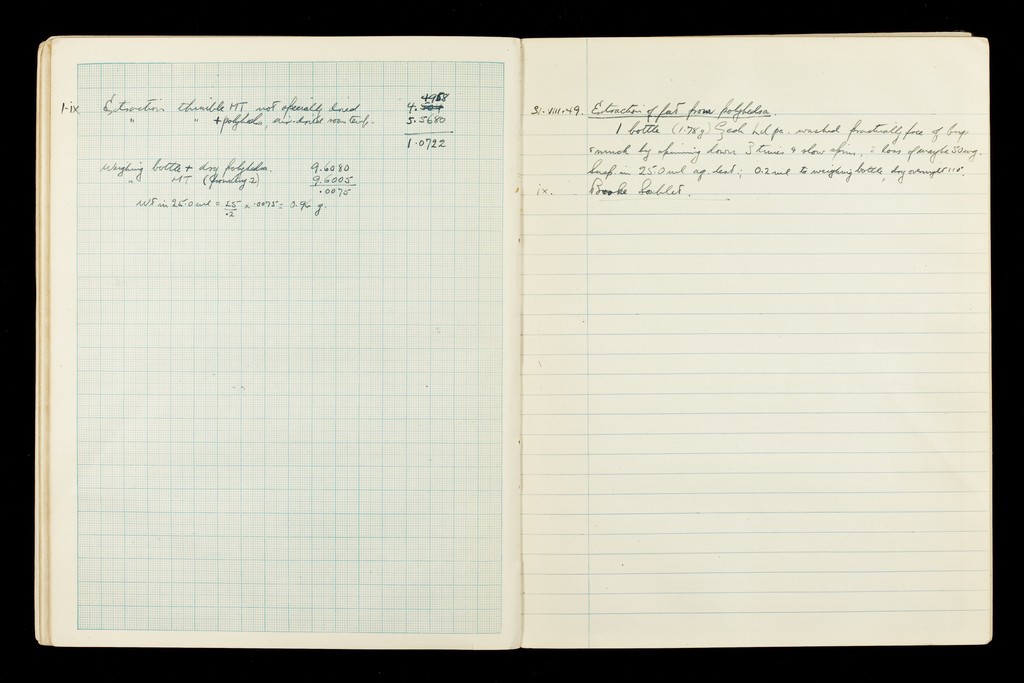 1-ix Extraction thimble MT not specially dried 4.4958
" " + polyhedra, air-dried room temp. 5.5680
1.0722
Weighing bottle + dry polyhedra. 9.6080
" MT (from 2) 9.6005
.0075
Wt in 25.0 ml = 25/.2 x .0075 = 0.96 g.
31.VIII.49. Extraction of fat from polyhedra.
1 bottle (1.78g) washed practically free of
& muck by spinning down 3 times & slow spins, = loss of maybe 50 mg.
Susp. in 25.0 ml aq. dest; 0.2 ml to weighing bottle, dry overnight 110°.
ix. Broke Soxhlet.